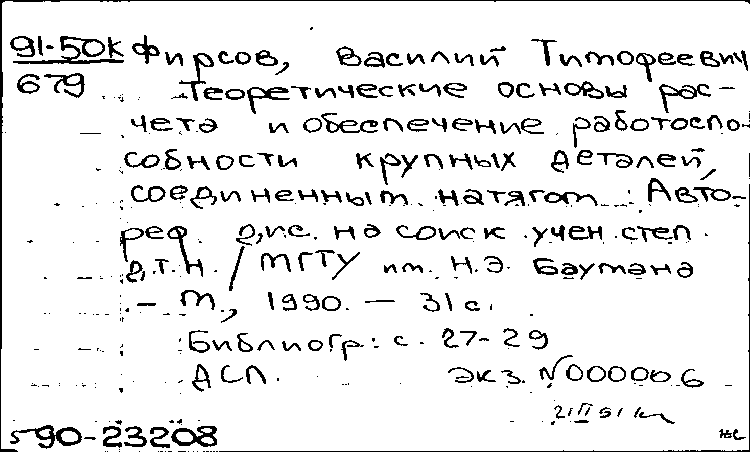 91-50К Фирсов, Василий Тимофеевич
679 Теоретические основы рас-
чета и обеспечение работоспо-
собности крупных деталей,
соединенным натягом : Авто-
реф. дис. на соиск. учен. степ.
д.т.н. / МГТУ им. Н.Э. Баумана
. - М., 1990. - 31 с.
Библиогр: с. 27-29
ДСП. экз. N000006
21 II 91
590-23208